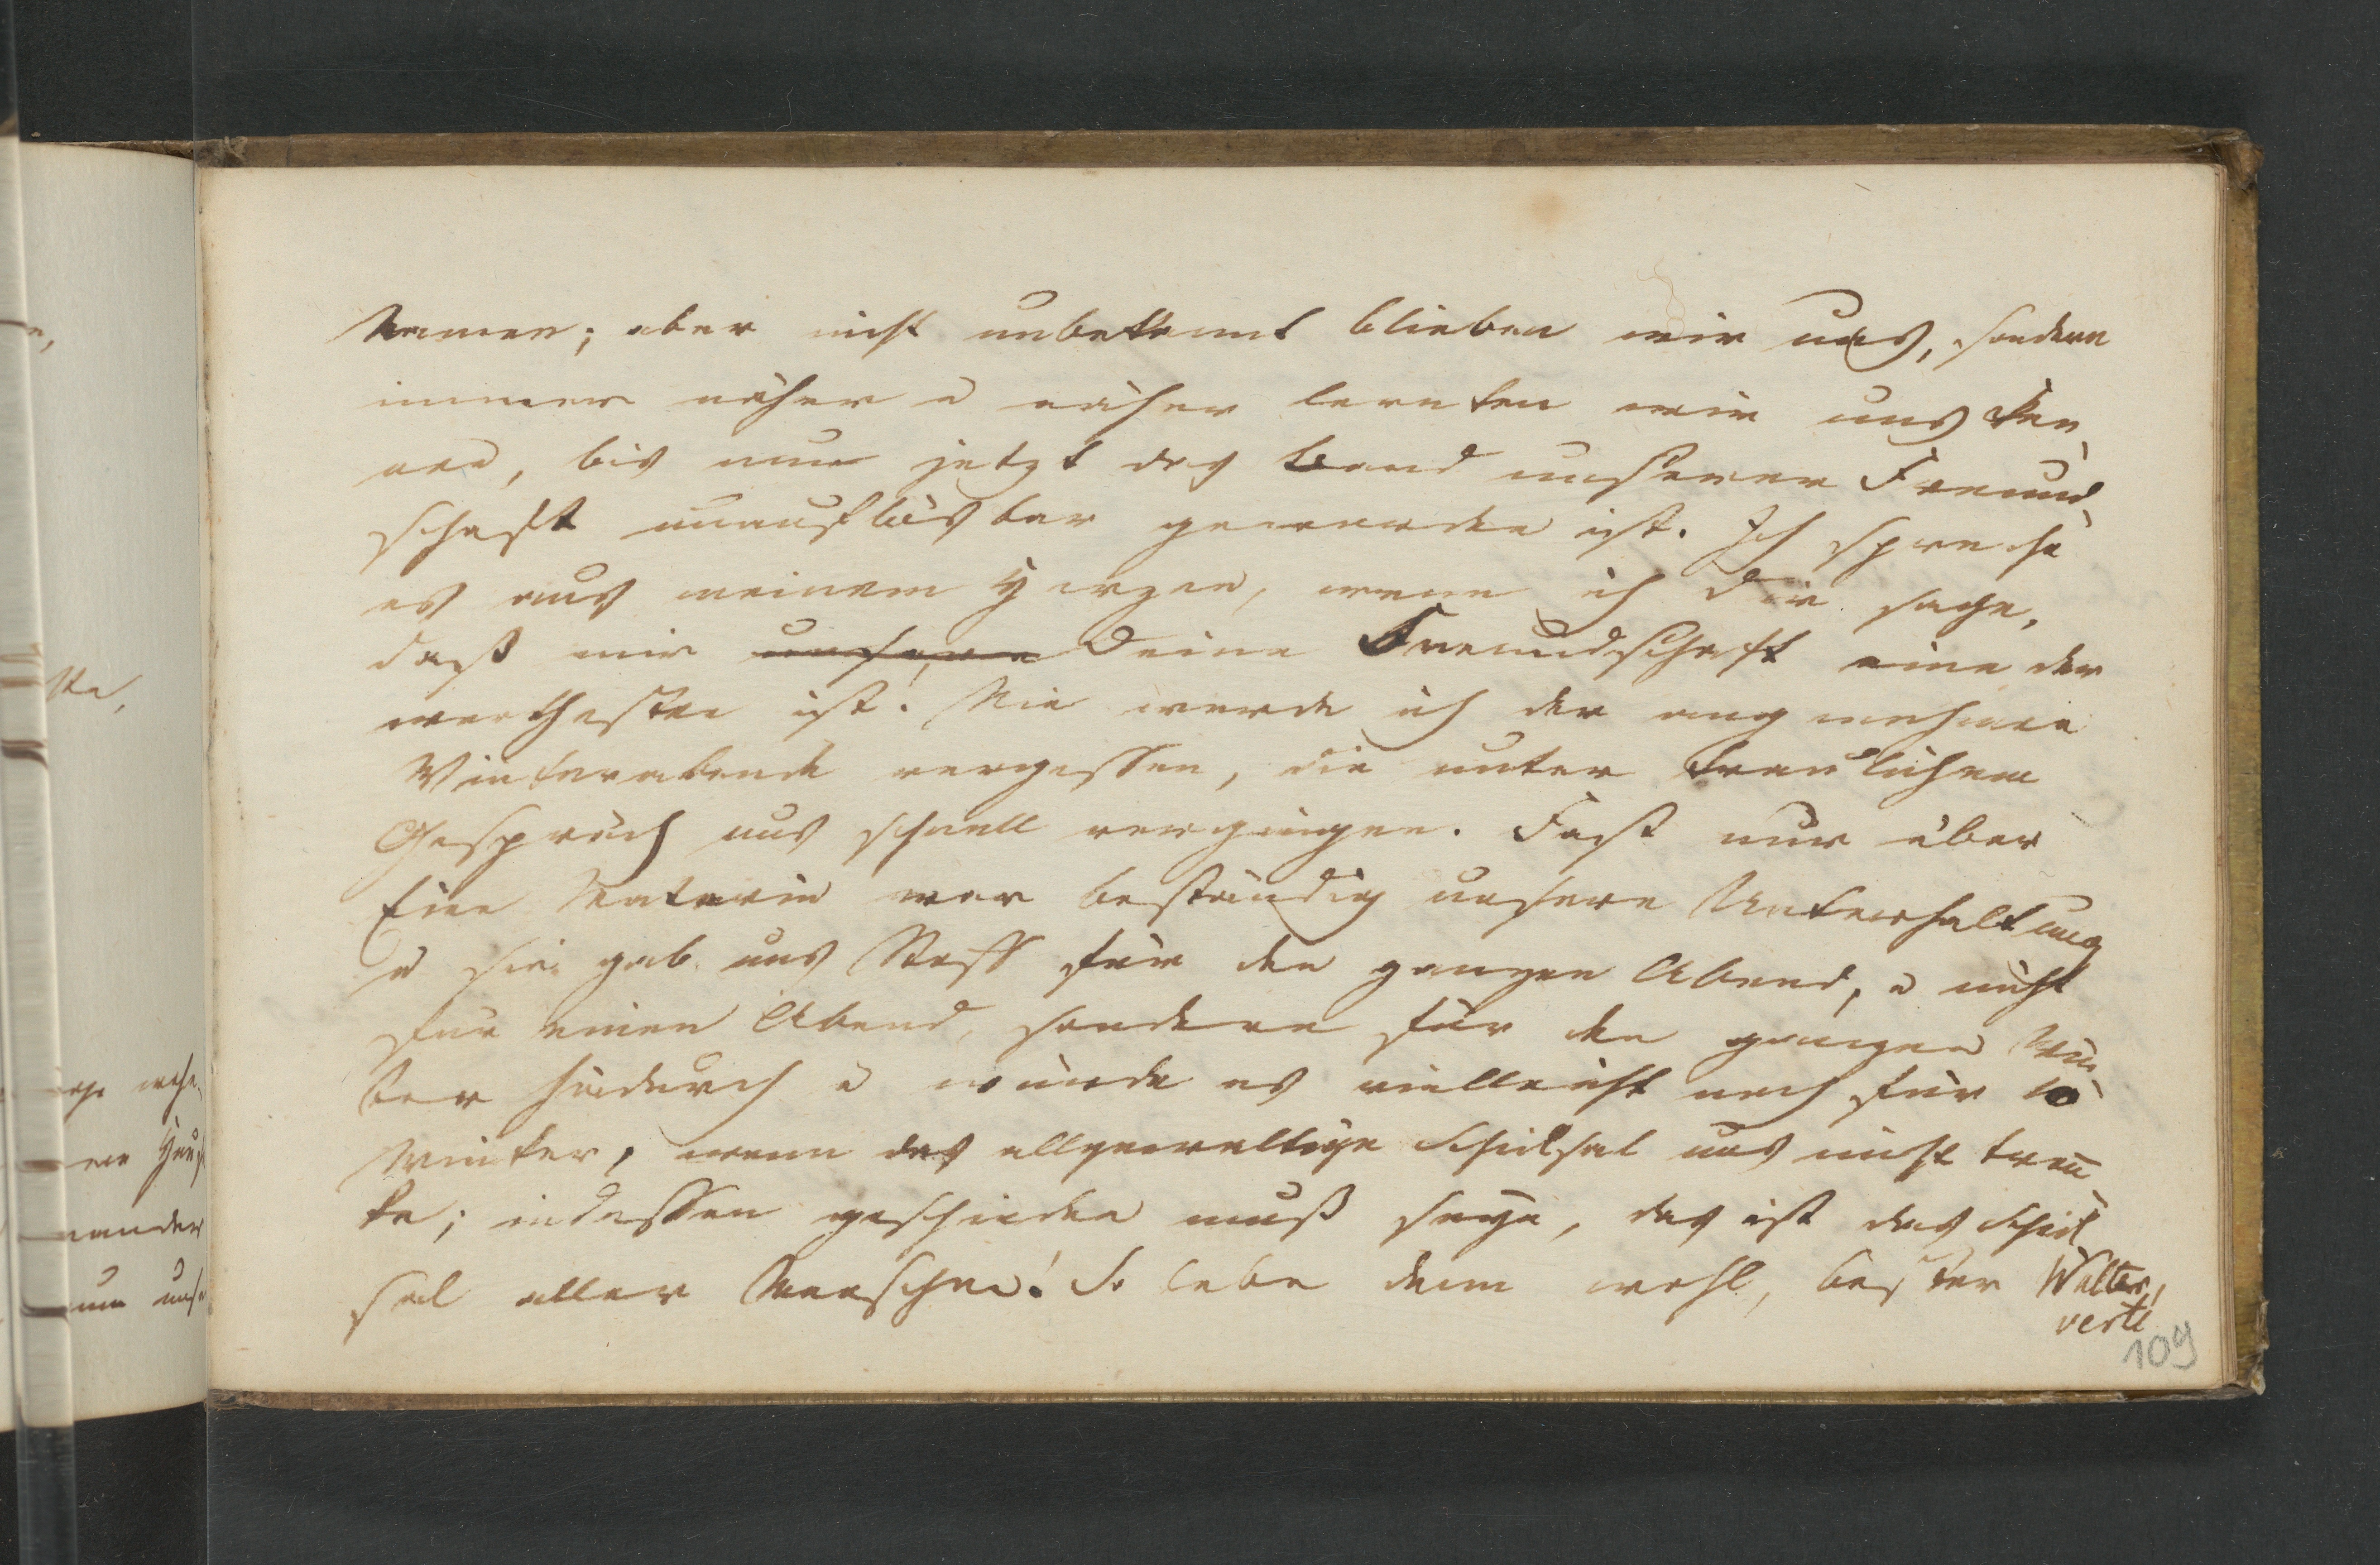 Namen; aber nicht unbekannt blieben wir uns, sondern
immer näher u näher lernten wir uns ken
nen, bis nun jetzt das Band unserer Freund
schaft unauflösbar geworden ist. Ich spreche
es aus meinem Herzen, wenn ich Dir sage,
daß mir unsere Deine Freundschaft eine der
werthesten ist. Nie werde ich der angenehmen
Winterabende vergessen, die unter traulichem
Gespräch uns schnell vergingen. Fast nur über
Eine Materie war beständig unsere Unterhaltung
u sie gab uns Stoff für den ganzen Abend, u nicht
für einen Abend, sondern für den ganzen Win
ter hindurch u würde es vielleicht noch für 10
Winter, wenn das allgewaltige Schicksal uns nicht tren̄
te; indessen geschieden muß seyn, das ist das Schick
sal aller Menschen! So lebe denn wohl, bester Walter,
verte
109
nander